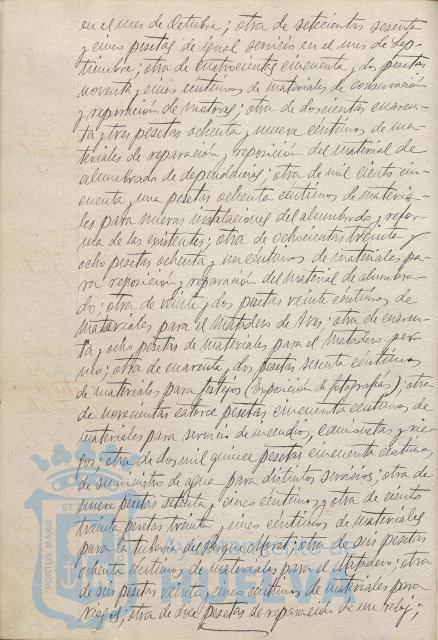 en el mes de Octubre; otra de setecientas sesenta
y cinco pesetas de igual servicio en el mes de Sep-
tiembre; otra de cuatrocientas cincuenta y dos pesetas
noventa y cinco centimos de materiales de conservación
y reparación de motores; otra de doscientas cuaren-
ta y tres pesetas ochenta y nueve céntimos de ma-
teriales de reparación y reposición del material de
alumbrado de dependencias; otra de mil ciento cin-
cuenta y una pesetas ochenta centimos de materia-
les para nuevas instalaciones del alumbrado y refor-
ma de las existentes; otra de ochocientas treinta y
ocho pesetas ochenta y un centimos de materiales pa-
ra reposición y reparación del material de alumbra-
do; otra de veinte y dos pesetas veinte centimos de
materiales para el Matadero de Aves; otra de cuaren-
ta y ocho pesetas de materiales para el Matadero
mo; otra de cuarenta y dos pesetas sesenta céntimos
de materiales para festejos (Exposición de fotografias); otra
de novecientas catorce pesetas cincuenta centimos de
materiales para servicio de incendios, camionetas y rie-
gos; otra de dos mil quince pesetas cincuenta centimos
de suministro de agua para distintos servicios; otra de
nueve pesetas setenta y cinco centimos y otra de ciento
treinta pesetas treinta y cinco centimos de materiales
para la tuberia del Parque Moret; otra de seis pesetas
ochenta centimos de materiales para el Matadero; otra
de seis pesetas veinte y cinco centimos de materiales para
riegos; otra de doce pesetas de reparación de un reloj;
PORTUS MARIS ET
Ayuntamiento de
HUELVA